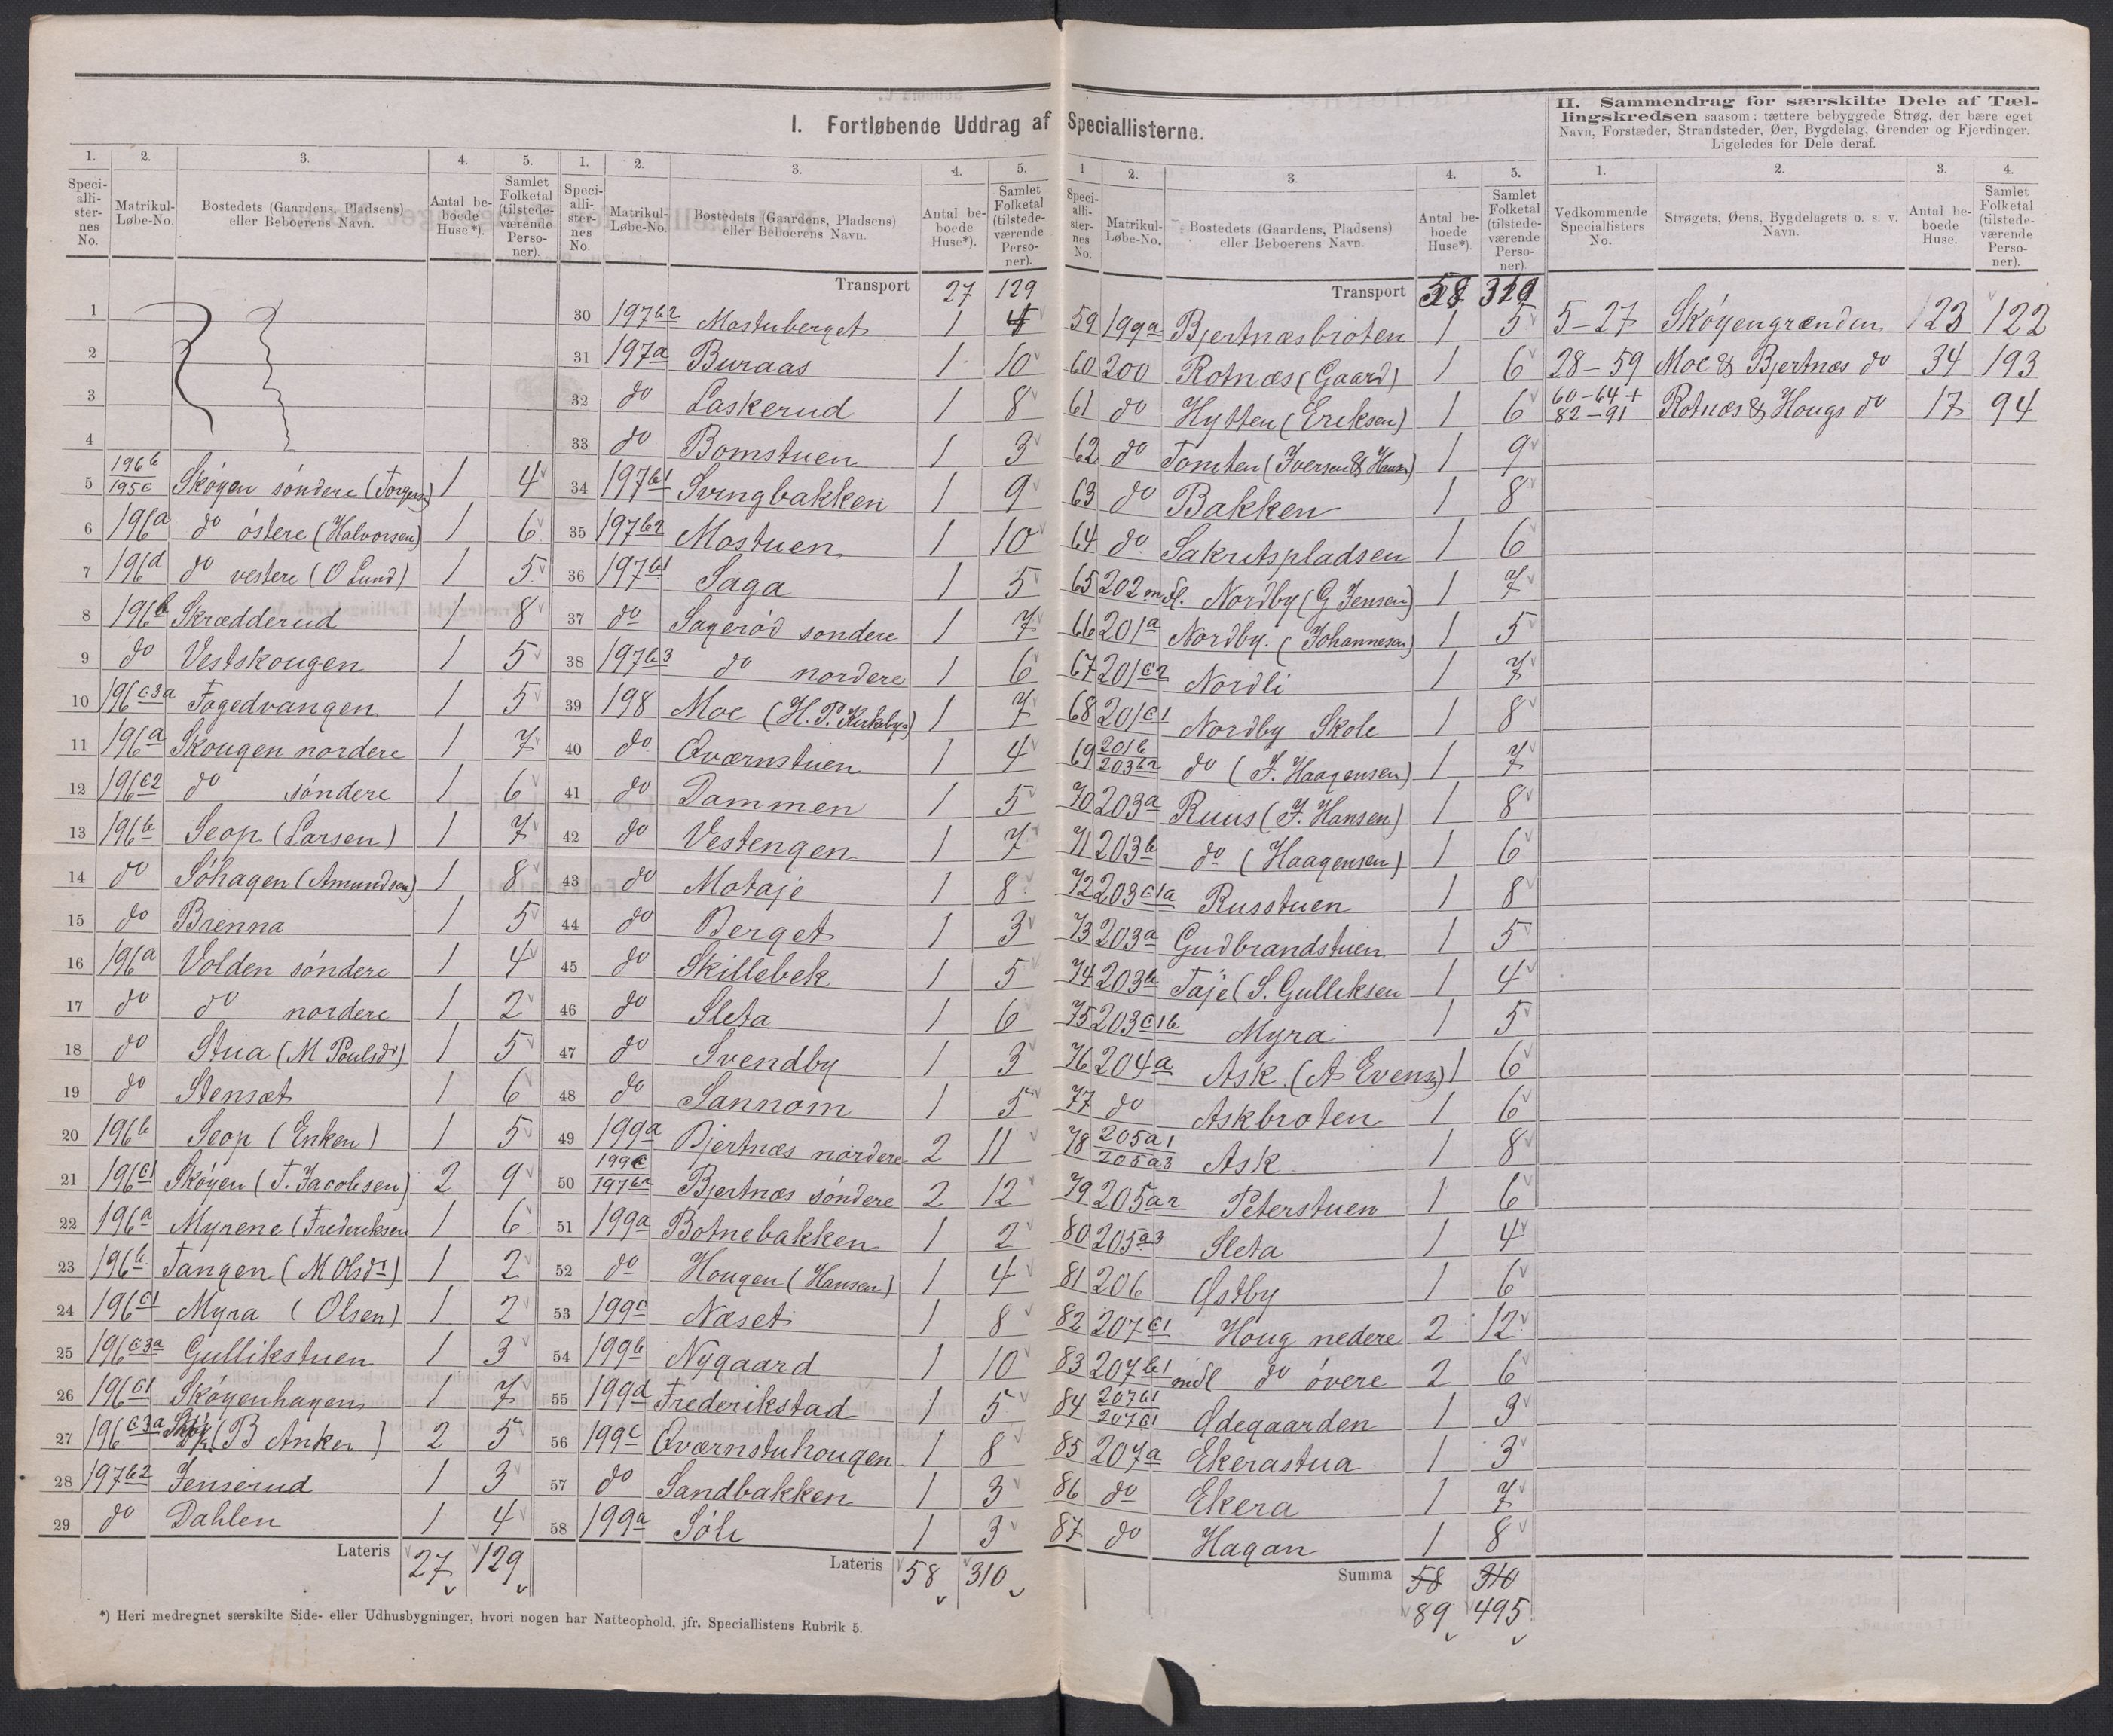 I. Fortløbende Uddrag af Speciallisterne.
II. Sammendrag for særskilte Dele af Tæl-
lingskredsen saasom: tættere bebyggede Strøg, der bære eget
Navn, Forstæder, Strandsteder, Øer, Bygdelag, Grender og Fjerdinger.
Ligeledes for Dele deraf.
1. 2. 3. 4. 5.
Speciallisternes No. Matrikul-Løbe-No. Bostedets (Gaardens, Pladsens) eller Beboerens Navn. Antal beboede Huse*). Samlet Folketal (tilstedeværende Personer).
1
2
3
4
5 196b 195c Skøyen søndere (Torgers) 1 4
6 196a do østere (Halvorsen) 1 6
7 196d do vestere (O Lund) 1 5
8 196b Skrædderud 1 8
9 do Vestskougen 1 5
10 196c3a Fogedvangen 1 5
11 196a Skougen nordere 1 7
12 196c2 do søndere 1 6
13 196b Seop (Larsen) 1 7
14 do Søhagen (Amundsen) 1 8
15 do Brenna 1 5
16 196a Volden søndere 1 4
17 do do nordere 1 2
18 do Stua (M Poulsdr) 1 5
19 do Stensæt 1 6
20 196b Seop (Enken) 1 5
21 196c1 Skøyen (T. Jacobsen) 2 9
22 196a Myrene (Frederiksen 1 6
23 196b Tangen (M Olsdr) 1 2
24 196c1 Myra (Olsen) 1 2
25 196c3a Gullikstuen 1 3
26 196c1 Skøyenhagen 1 7
27 196c3a (B Anker) 2 5
28 197b2 Jenserud 1 3
29 do Dahlen 1 4
Lateris 27 129
1. 2. 3. 4. 5.
Speciallisternes No. Matrikul-Løbe-No. Bostedets (Gaardens, Pladsens) eller Beboerens Navn. Antal beboede Huse*). Samlet Folketal (tilstedeværende Personer).
Transport 27 129
30 197b2 Mostuberget 1 4
31 197a Buraas 1 10
32 do Laskerud 1 8
33 do Bomstuen 1 3
34 197b1 Svingbakken 1 9
35 197b2 Mostuen 1 10
36 197b1 Saga 1 5
37 do Sagerød søndere 1 7
38 197b3 do nordere 1 6
39 198 Moe (H. P. Kirkebye) 1 7
40 do Qværnstuen 1 4
41 do Dammen 1 5
42 do Vestengen 1 7
43 do Motaje 1 8
44 do Berget 1 3
45 do Skillebek 1 5
46 do Sleta 1 6
47 do Svendby 1 3
48 do Sannom 1 5
49 199a Bjertnæs nordere 2 11
50 199c 197b2 Bjertnæs søndere 2 12
51 199a Botnebakken 1 2
52 do Hougen (Hansen) 1 4
53 199c Næset 1 8
54 199b Nygaard 1 10
55 199d Frederikstad 1 5
56 199c Qværnstuhougen 1 8
57 do Sandbakken 1 3
58 199a Søli 1 3
Lateris 58 310
1 2. 3. 4. 5.
Speciallisternes No. Matrikul-Løbe-No. Bostedets (Gaardens, Pladsens) eller Beboerens Navn. Antal beboede Huse*). Samlet Folketal (tilstedeværende Personer)
Transport 58 310
59 199a Bjertnæsbroten 1 5
60 200 Rotnæs (Gaard) 1 6
61 do Hytten (Eriksen) 1 6
62 do Tomten (Iversen & Hansen) 1 9
63 do Bakken 1 8
64 do Sakritspladsen 1 6
65 202 mfl. Nordby (G Jensen) 1 7
66 201a Nordby. (Johannesen) 1 5
67 201c2 Nordli 1 7
68 201c1 Nordby Skole 1 8
69 201b 203b2 do (J. Haagensen) 1 7
70 203a Ruus (J. Hansen) 1 8
71 203b do (Haagensen) 1 6
72 203c1a Russtuen 1 8
73 203a Gudbrandstuen 1 5
74 203b Taje (S. Gulliksen 1 4
75 203c1b Myra 1 5
76 204a Ask. (A Evens) 1 6
77 do Askbroten 1 6
78 205a1 205a3 Ask 1 8
79 205a2 Peterstuen 1 6
80 205a3 Sleta 1 4
81 206 Østby 1 6
82 207c1 Houg nedere 2 12
83 207b1 mfl do øvere 2 6
84 207b1 207c1 Ødegaarden 1 3
85 207a Ekerastua 1 3
86 do Ekera 1 7
87 do Hagan 1 8
Summa 58 310
89 495
1. 2. 3. 4.
Vedkommende Speciallisters No. Strøgets, Øens, Bygdelagets o. s. v. Navn. Antal beboede Huse. Samlet Folketal (tilstedeværende Personer).
5-27 Skøyengrænden 23 122
28-59 Moe & Bjertnæs do 34 193
60-64+ 82-91 Rotnæs & Hougs do 17 94
*) Heri medregnet særskilte Side- eller Udhusbygninger, hvori nogen har Natteophold, jfr. Speciallistens Rubrik 5.